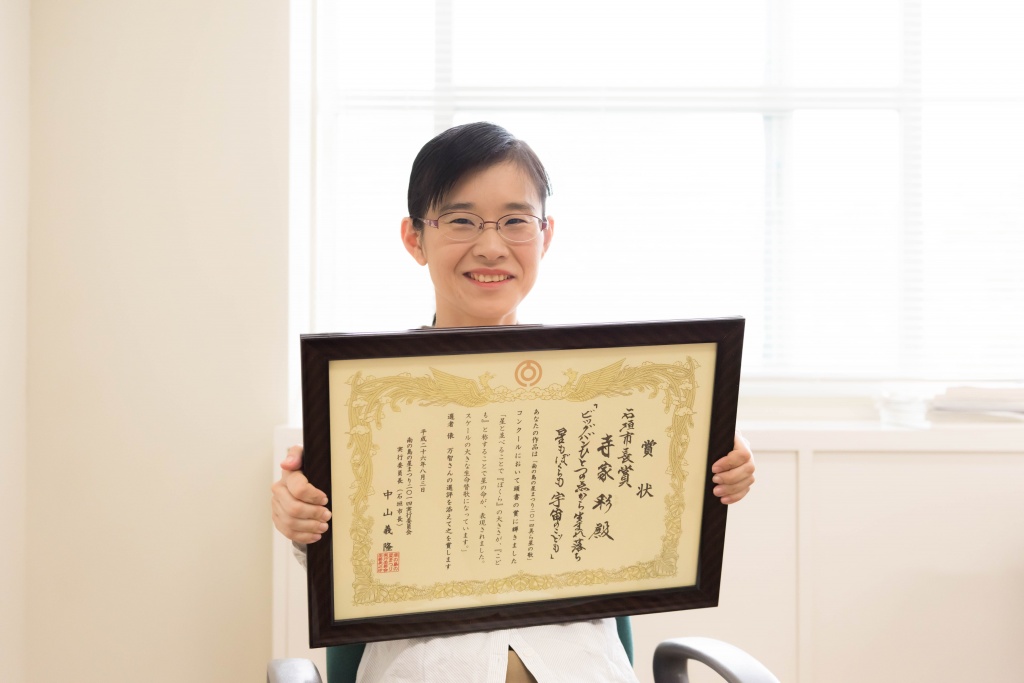 賞状
石垣市長賞
寺家 彩 殿
「ビッグバンひとつの点から生まれ落ち
星もぼくらも宇宙のこども」
あなたの作品は「南の島の星まつり二〇一四美ら星の歌」
コンクールにおいて頭書の賞に輝きました
「星と並べることで『ぼくら』の大きさが、『こど
も』と称することで星の命が、表現されました。
スケールの大きな生命賛歌になっています。」
選者 俵 万智さんの選評を添えて之を賞します
平成二十六年八月三日
南の島の星まつり二〇一四実行委員会
実行委員長(石垣市長)
中山義隆